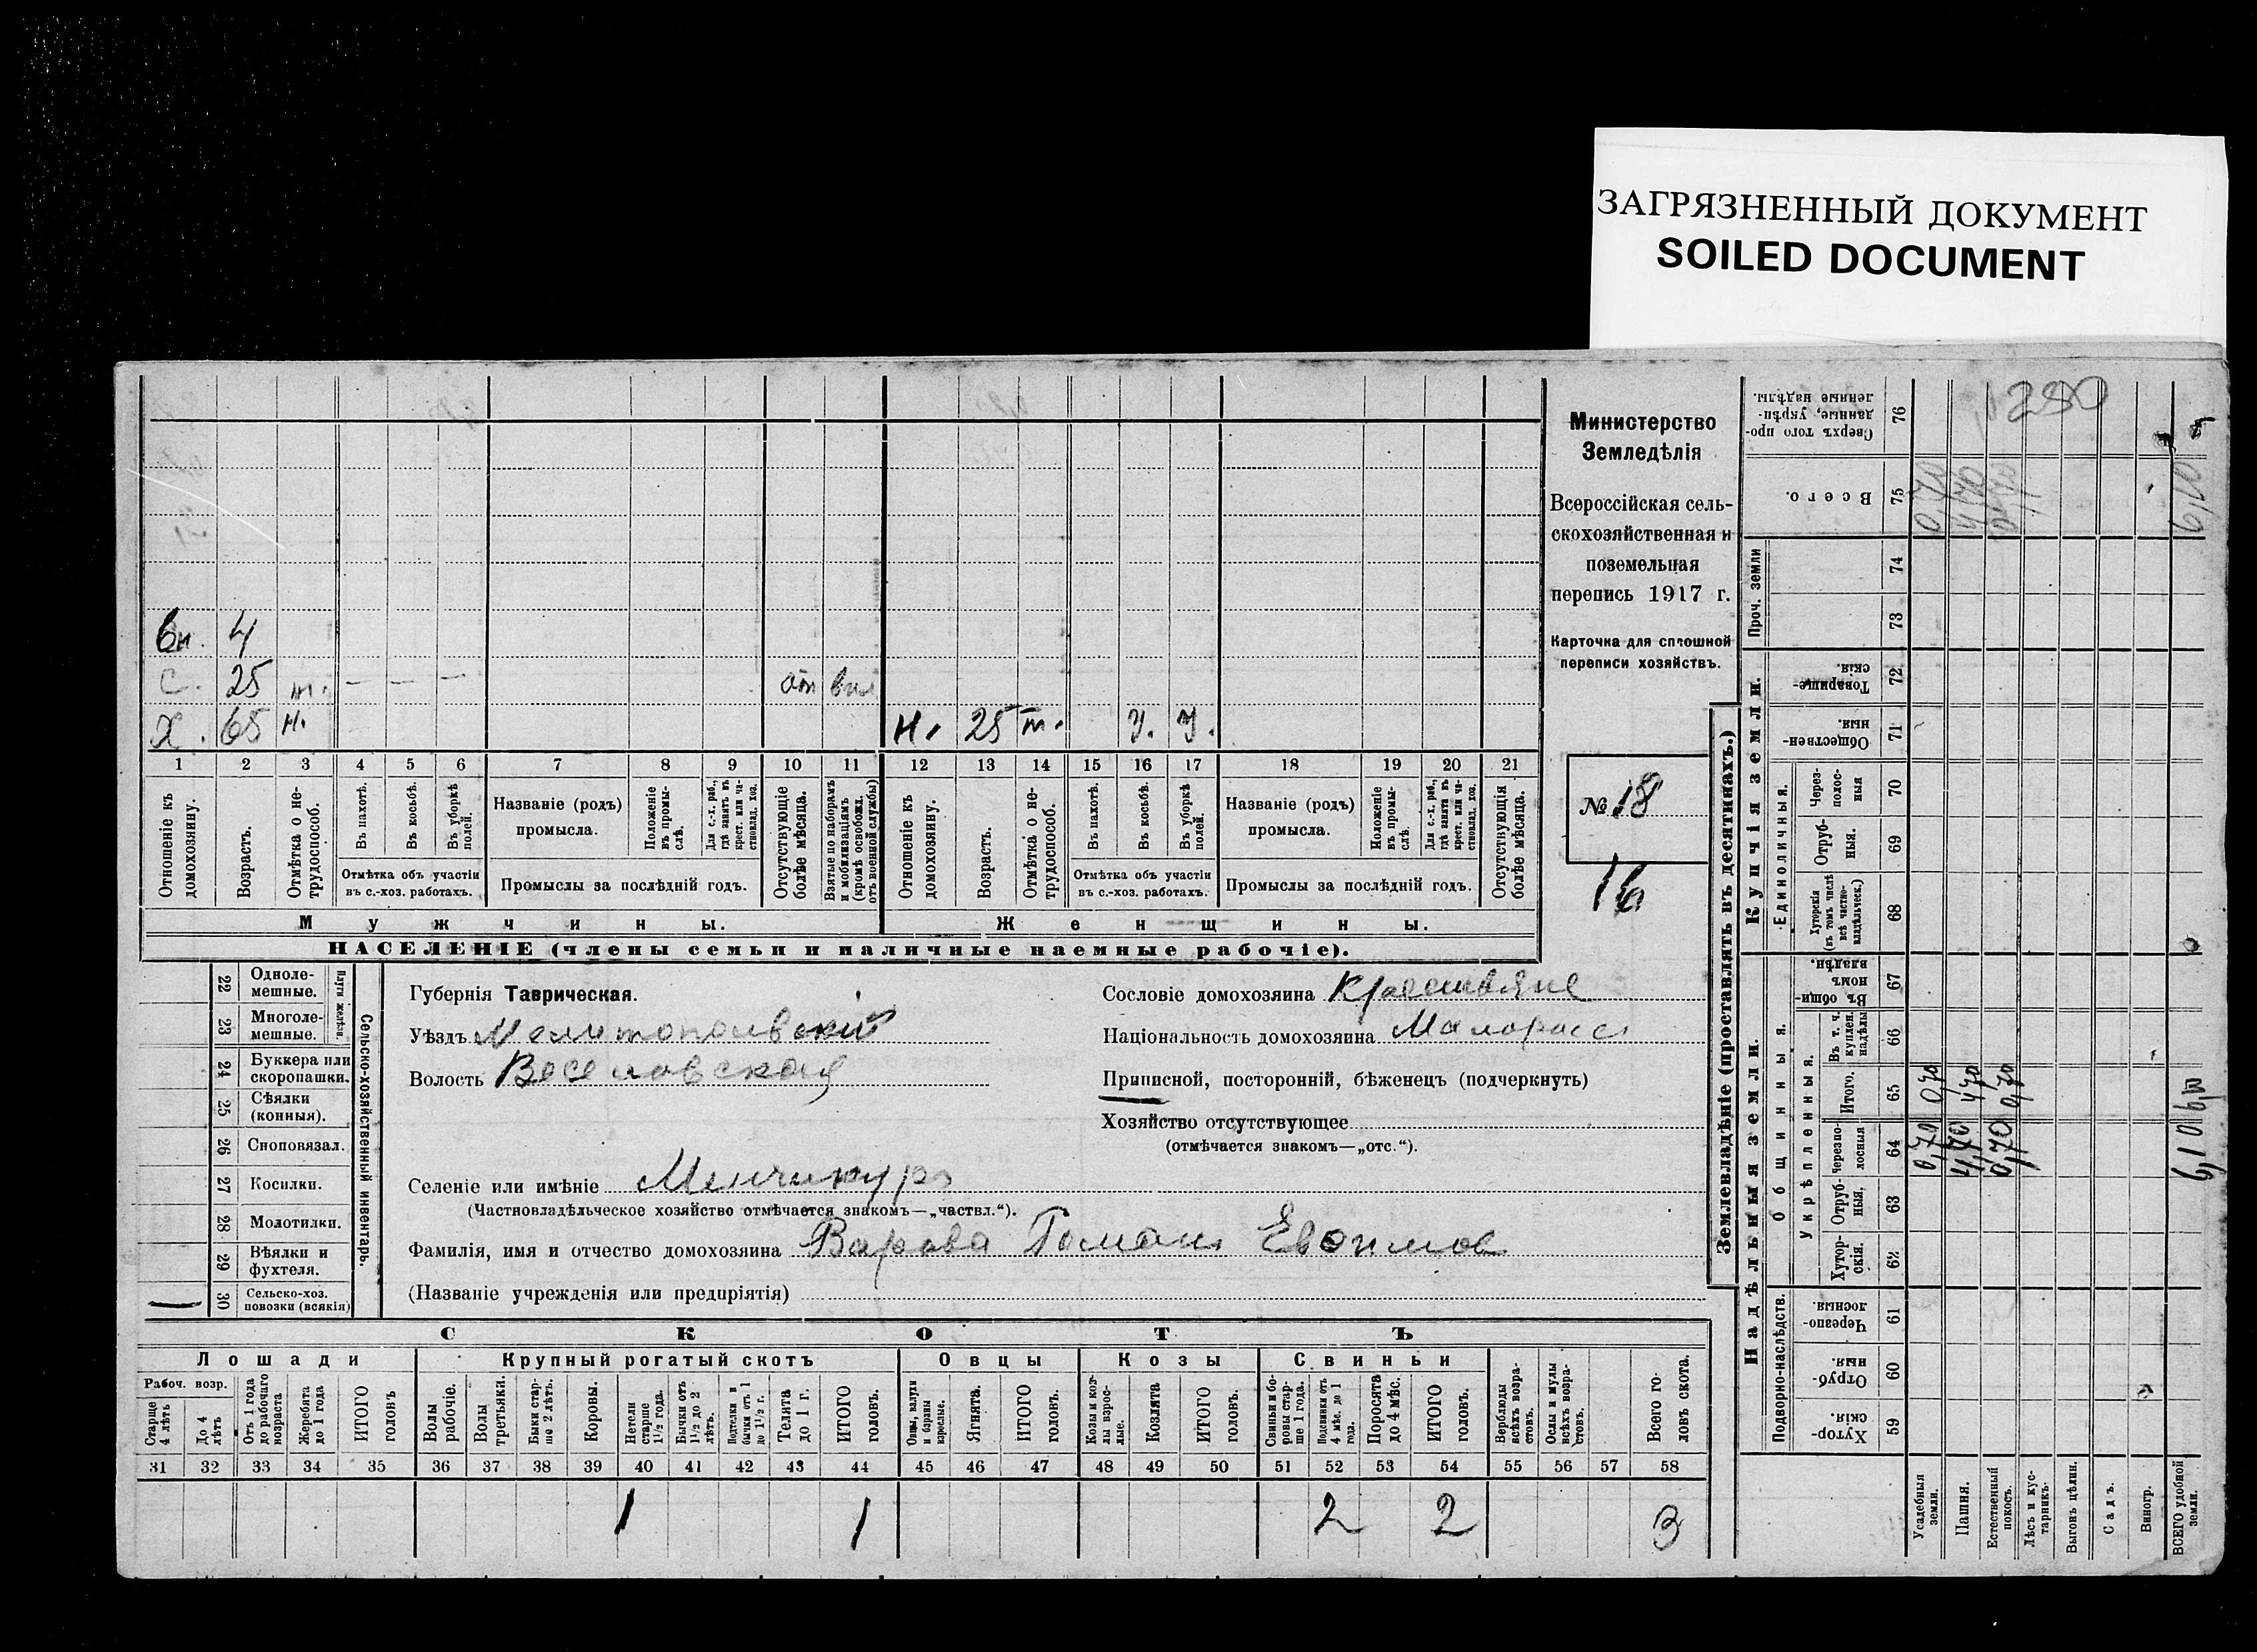 ЗАГРЯЗНЕННЫЙ ДОКУМЕНТ
SOILED DOCUMENT
Министерство
Земледѣлія
Всероссійская сель-
скохозяйственная и
поземельная
перепись 1917 г.
Карточка для сплошной
переписи хозяйствъ.
№ 18
16
вн. 4
с. 25 т. — — — от вкл
Х. 65 н. Н. 25 т. У. У.
1 2 3 4 5 6 7 8 9 10 11 12 13 14 15 16 17 18 19 20 21
Отношеніе къ домохозяину.
Возрастъ.
Отмѣтка о не-трудоспособ.
Въ пахотѣ.
Въ косьбѣ.
Въ уборкѣ полей.
Отмѣтка объ участіи въ с.-хоз. работахъ.
Названіе (родъ) промысла.
Положеніе въ промы-слѣ.
Для с.-х. раб., гдѣ занятъ въ крест. или ча-стновлад. хоз.
Промыслы за послѣдній годъ.
Отсутствующіе болѣе мѣсяца.
Взятые по наборамъ и мобилизаціямъ (кромѣ освобожд. отъ военной службы)
Отношеніе къ домохозяину.
Возрастъ.
Отмѣтка о не-трудоспособ.
Въ пахотѣ.
Въ косьбѣ.
Въ уборкѣ полей.
Отмѣтка объ участіи въ с.-хоз. работахъ.
Названіе (родъ) промысла.
Положеніе въ промы-слѣ.
Для с.-х. раб., гдѣ занята въ крест. или ча-стновлад. хоз.
Промыслы за послѣдній годъ.
Отсутствующія болѣе мѣсяца.
Мужчины. Женщины.
НАСЕЛЕНІЕ (члены семьи и наличные наемные рабочіе).
22 Одноле-мешные.
23 Многоле-мешные.
Плуги желѣзн.
24 Буккера или скоропашки.
25 Сѣялки (конныя).
26 Сноповязал.
27 Косилки.
28 Молотилки.
29 Вѣялки и фухтеля.
— 30 Сельско-хоз. повозки (всякія)
Сельско-хозяйственный инвентарь.
Губернія Таврическая.
Уѣздъ Мелитопольскій
Волость Веселовская
Сословіе домохозяина Крестьяне
Національность домохозяина Малоросс
Приписной, посторонній, бѣженецъ (подчеркнуть)
Хозяйство отсутствующее
(отмѣчается знакомъ—„отс.“).
Селеніе или имѣніе Менчикуръ
(Частновладѣльческое хозяйство отмѣчается знакомъ—„частвл.“).
Фамилія, имя и отчество домохозяина Варава
(Названіе учрежденія или предпріятія)
СКОТЪ
Лошади Крупный рогатый скотъ Овцы Козы Свиньи
Рабоч. возр.
Старше 4 лѣтъ
До 4 лѣтъ
Отъ 1 года до рабочаго возраста
Жеребята до 1 года
ИТОГО головъ
Волы рабочіе.
Волы третьяки.
Быки стар-ше 2 лѣтъ.
Коровы.
Нетели старше 1½ года.
Бычки отъ 1½ до 2 лѣтъ.
Подтелки и бычки отъ 1 до 1½ г.
Телята до 1 г.
ИТОГО головъ.
Овцы, валухи и бараны взрослые.
Ягнята.
ИТОГО головъ.
Козы и коз-лы взрос-лые.
Козлята
ИТОГО головъ.
Свиньи и бо-ровы стар-ше 1 года.
Подсвинки отъ 4 мѣс. до 1 года.
Поросята до 4 мѣс.
ИТОГО головъ.
Верблюды всѣхъ возра-стовъ.
Ослы и мулы всѣхъ возра-стовъ.
Всего го-ловъ скота.
31 32 33 34 35 36 37 38 39 40 41 42 43 44 45 46 47 48 49 50 51 52 53 54 55 56 57 58
1 1 2 2 3
Землевладѣніе (проставлять въ десятинахъ.)
Надѣльныя земли. Купчія земли. Проч. земли
Подворно-наслѣдств.
Общинныя.
Укрѣпленныя.
Единоличныя.
59 Хутор-скія.
60 Отруб-ныя.
61 Черезпо-лосныя.
62 Хутор-скія.
63 Отруб-ныя.
64 Черезпо-лосныя
65 Итого.
66 Въ т. ч. куплен. надѣлы
67 Въ общи-номъ владѣн.
68 Хуторскія (въ томъ числѣ всѣ частно-владѣльческ.)
69 Отруб-ныя.
70 Через-полос-ныя
71 Обществен-ныя.
72 Товарище-скія.
73
74
75 Всего.
76 Сверхъ того про-данные, укрѣп-ленные надѣлы.
Усадебныя земли. 0,70 0,70 0,70
Пашня. 4,70 4,70 4,70
Естественный покосъ. 0,70 0,70 0,70
Лѣсъ и кус-тарникъ.
Выгонъ цѣлин.
Садъ.
Виногр.
ВСЕГО удобной земли. 6,10 6,10 6,10
280